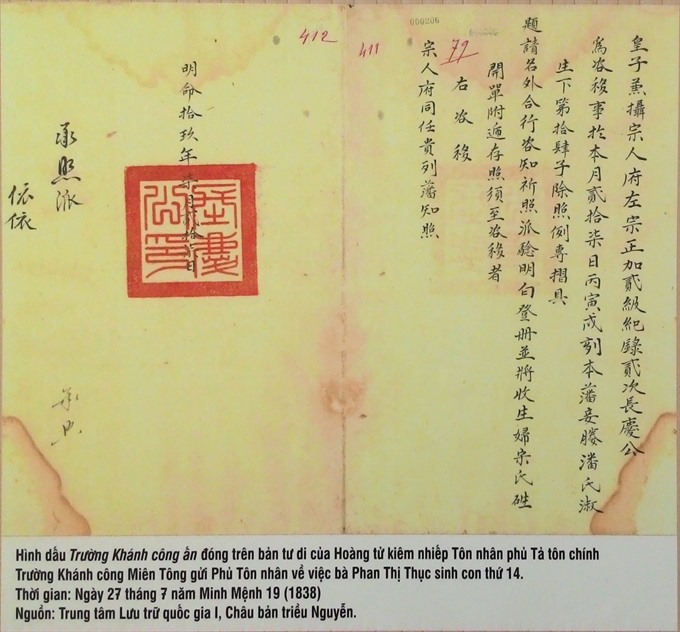 000206
皇子兼攝宗人府左宗正加貳級紀錄貳次長慶公
爲咨移事於本月貳拾柒日丙寅戌刻本藩妾媵潘氏淑
生下第拾肆子除照例專摺具
題請名外合行咨知祈照派驗明白登冊並將收生婦宗氏
開單附遞存照須至咨移者
右咨移
宗人府同任貴列藩知照
79
411
412
明命拾玖年柒月貳拾柒日
長慶公印
承照派
依依
Hình dấu Trường Khánh công ấn đóng trên bản tư di của Hoàng tử kiêm nhiếp Tôn nhân phủ Tả tôn chính
Trường Khánh công Miên Tông gửi Phủ Tôn nhân về việc bà Phan Thị Thục sinh con thứ 14.
Thời gian: Ngày 27 tháng 7 năm Minh Mệnh 19 (1838)
Nguồn: Trung tâm Lưu trữ quốc gia I, Châu bản triều Nguyễn.